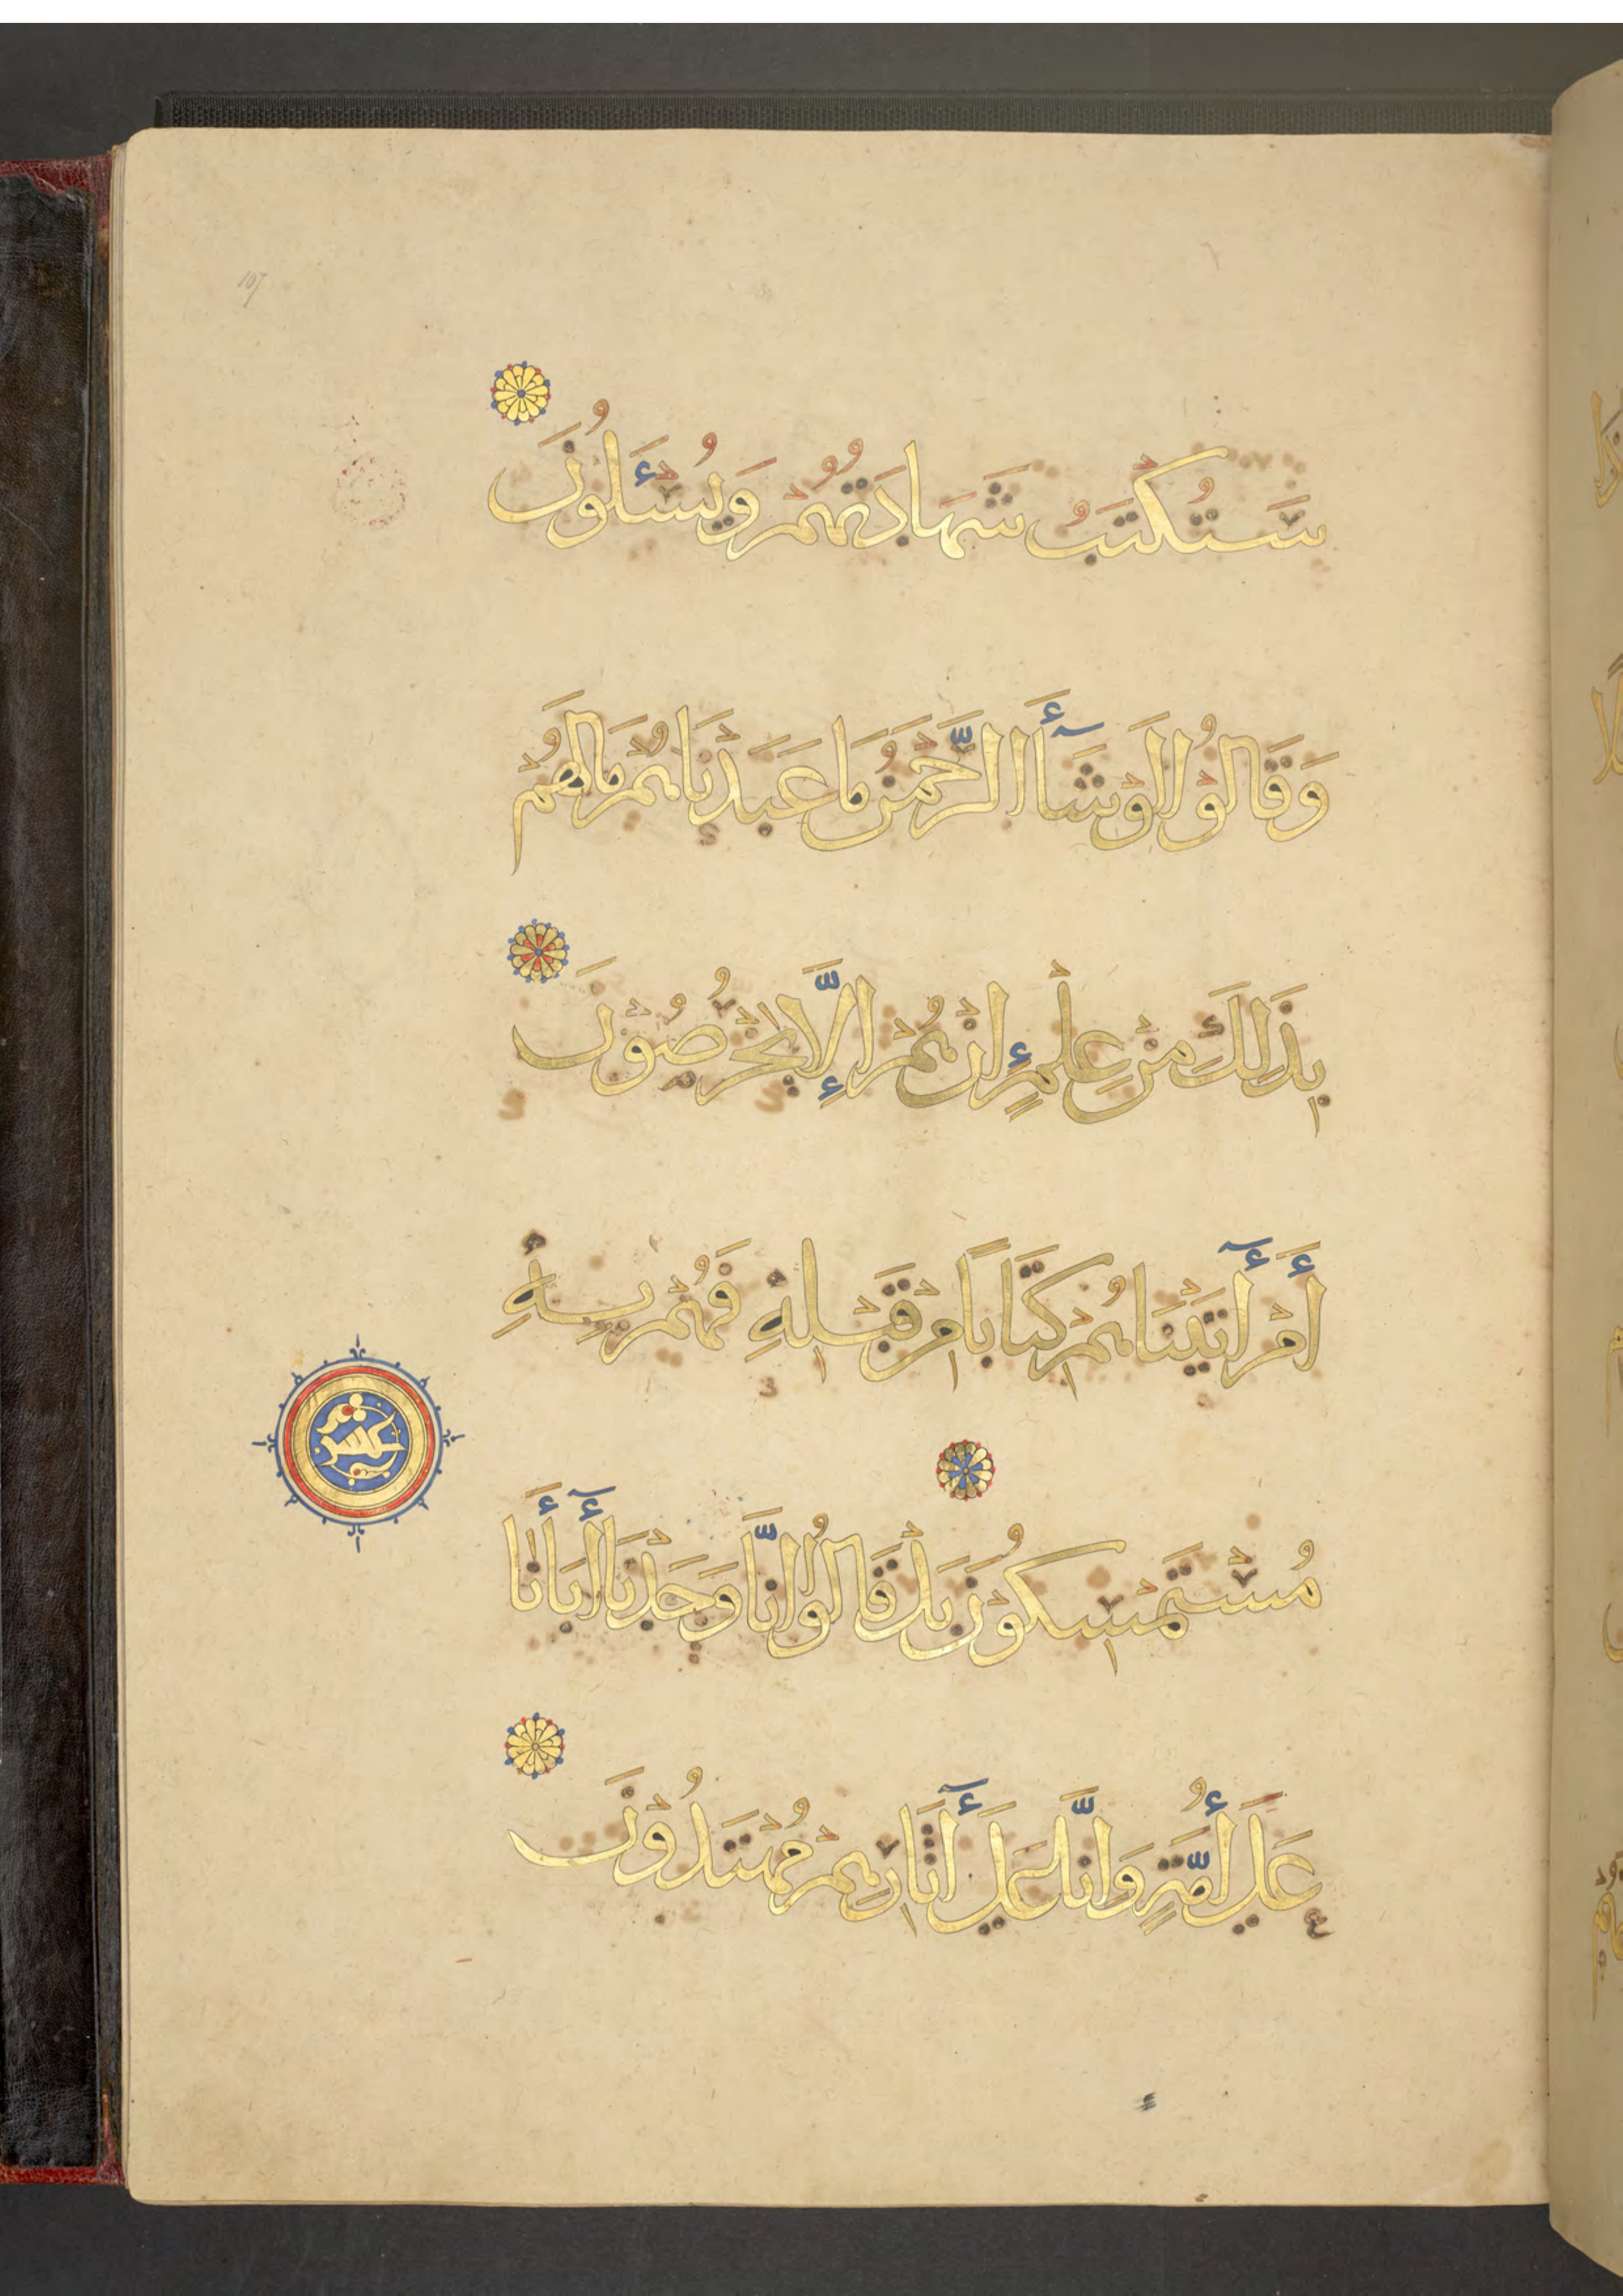 107
سَتُكْتَبُ شَهَادَتُهُمْ وَيُسْئَلُونَ
وَقَالُوْا لَوْ شَآأَ الرَّحْمَنُ مَا عَبَدْنَاهُمْ مَا لَهُمْ
بِذَلِكَ مِنْ عِلْمٍ إِنْ هُمْ إِلَّا يَخْرُصُوْنَ
أَمْ أٓتَيْنَاهُمْ كِتَابًا مِنْ قَبْلِهِ فَهُمْ بِهِ
مُسْتَمْسِكُوْنَ بَلْ قَالُوْا إِنَّا وَجَدْنَا أٓبَأَنَا
عَلَى أُمَّةٍ وَإِنَّا عَلَى أٓثَارِهِمْ مُهْتَدُوْنَ
عشر